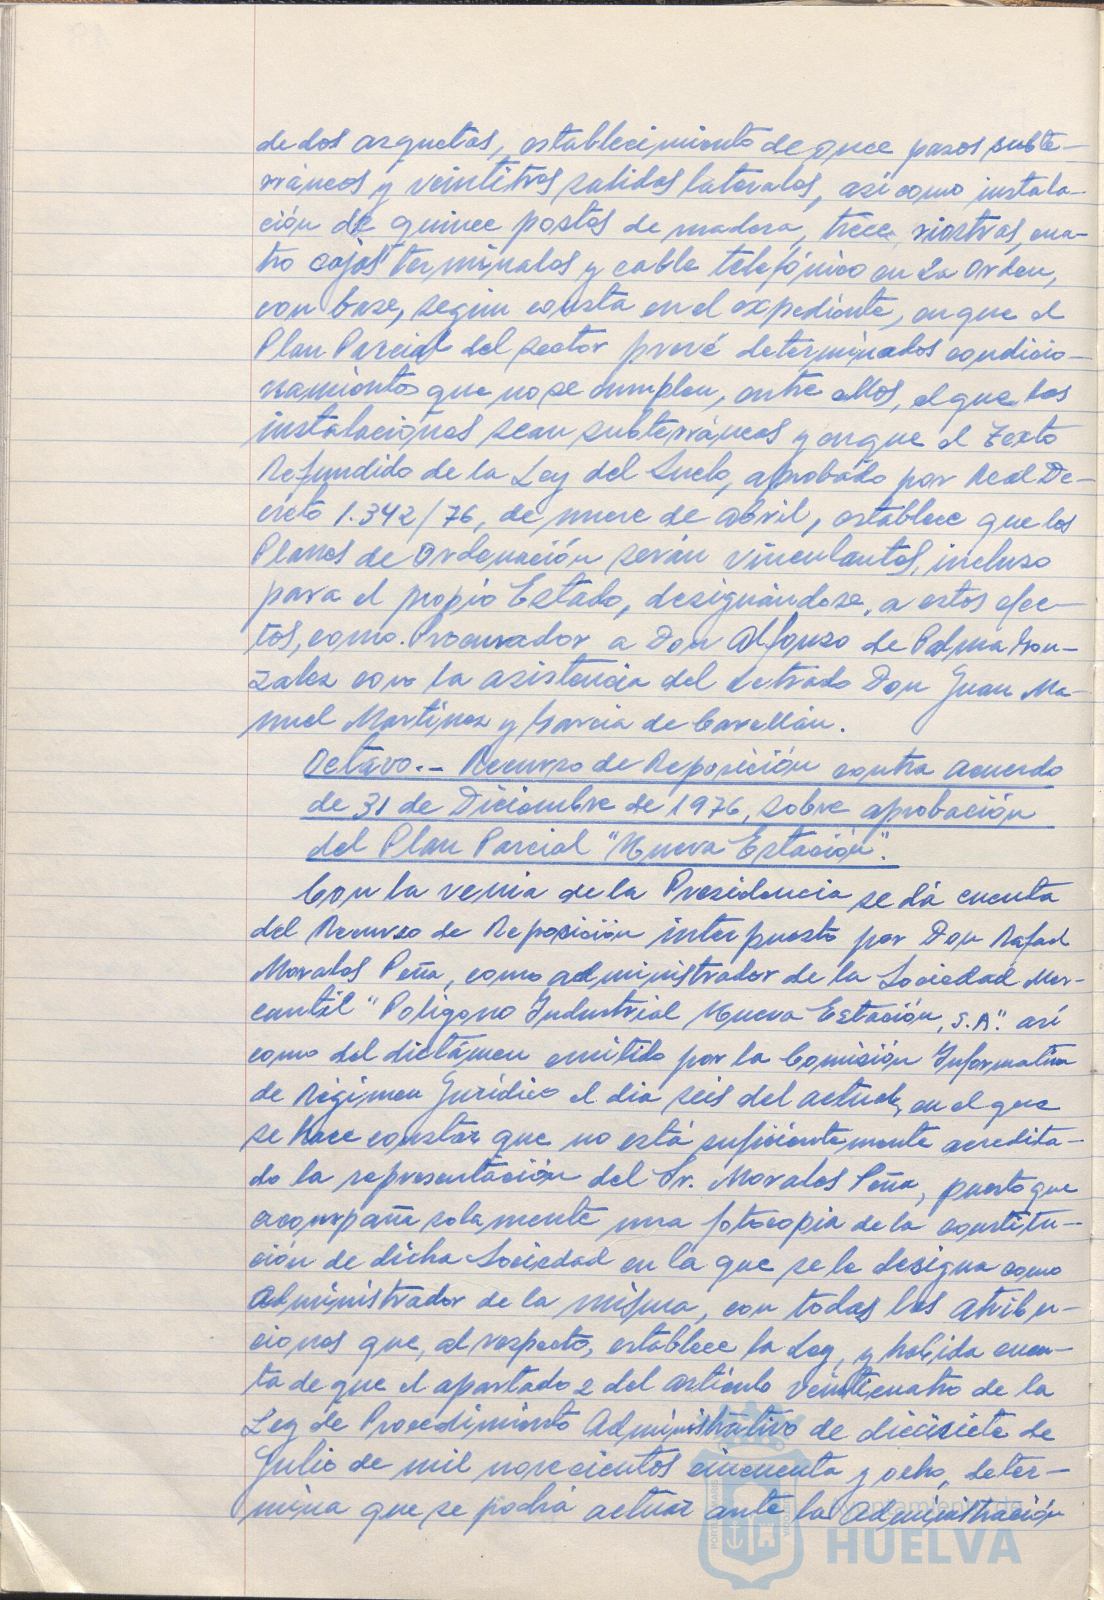 de dos arquetas, establecimiento de once pasos subte-
rráneos y veintitres salidas laterales, así como instala-
ción de quince postes de madera, trece riostras, cua-
tro cajas terminales y cable telefónico en La Orden,
con base, según consta en el expediente, en que el
Plan Parcial del sector prevé determinados condicio-
namientos que no se cumplen, entre ellos, el que las
instalaciones sean subterráneas y en que el Texto
Refundido de la Ley del Suelo, aprobado por Real De-
creto 1.342/76, de nueve de abril, establece que los
Planes de Ordenación serán vinculantes, incluso
para el propio Estado, designándose, a estos efec-
tos, como Procurador a Don Alfonso de Palma Gon-
zalez con la asistencia del Letrado Don Juan Ma-
nuel Martinez y Garcia de
Octavo.- Recurso de Reposición contra acuerdo
de 31 de Diciembre de 1976, sobre aprobación
del Plan Parcial "Nueva Estación".
Con la venia de la Presidencia se dá cuenta
del Recurso de Reposición interpuesto por Don Rafael
Morales Peña, como administrador de la Sociedad Mer-
cantil "Polígono Industrial Nueva Estación, S.A." así
como del dictámen emitido por la Comisión Informativa
de Régimen Jurídico el dia seis del actual, en el que
se hace constar que no está suficientemente acredita-
do la representación del Sr. Morales Peña, puesto que
acompaña solamente una fotocopia de la constitu-
ción de dicha Sociedad en la que se le designa como
Administrador de la misma, con todas las atribu-
ciones que, al respecto, establece la Ley, y habida cuen-
ta de que el apartado 2 del artículo veinticuatro de la
Ley de Procedimiento Administrativo de diecisiete de
Julio de mil novecientos cincuenta y ocho, deter-
mina que se podrá actuar ante la Administración
Ayuntamiento de
HUELVA